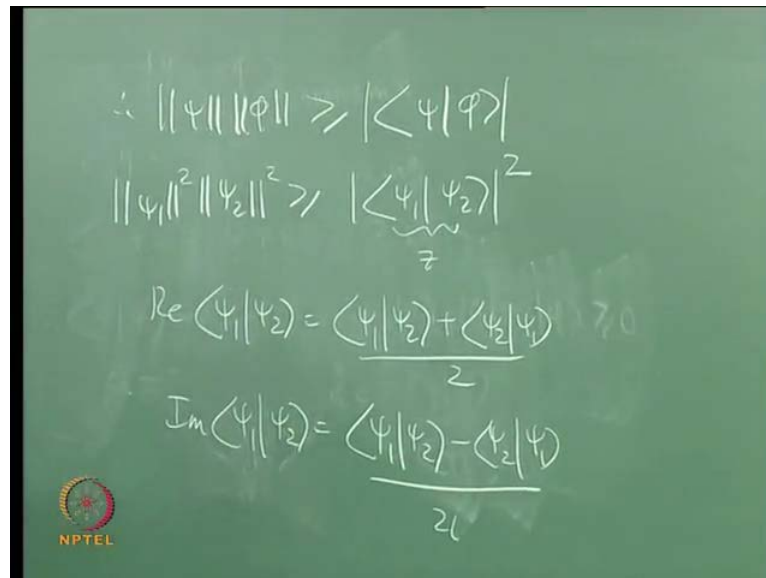 ∴ ||ψ|| ||φ|| ≥ |⟨ψ|φ⟩|
||ψ₁||² ||ψ₂||² ≥ |⟨ψ₁|ψ₂⟩|²
z
Re ⟨ψ₁|ψ₂⟩ = (⟨ψ₁|ψ₂⟩ + ⟨ψ₂|ψ₁⟩) / 2
Im ⟨ψ₁|ψ₂⟩ = (⟨ψ₁|ψ₂⟩ - ⟨ψ₂|ψ₁⟩) / 2i
NPTEL